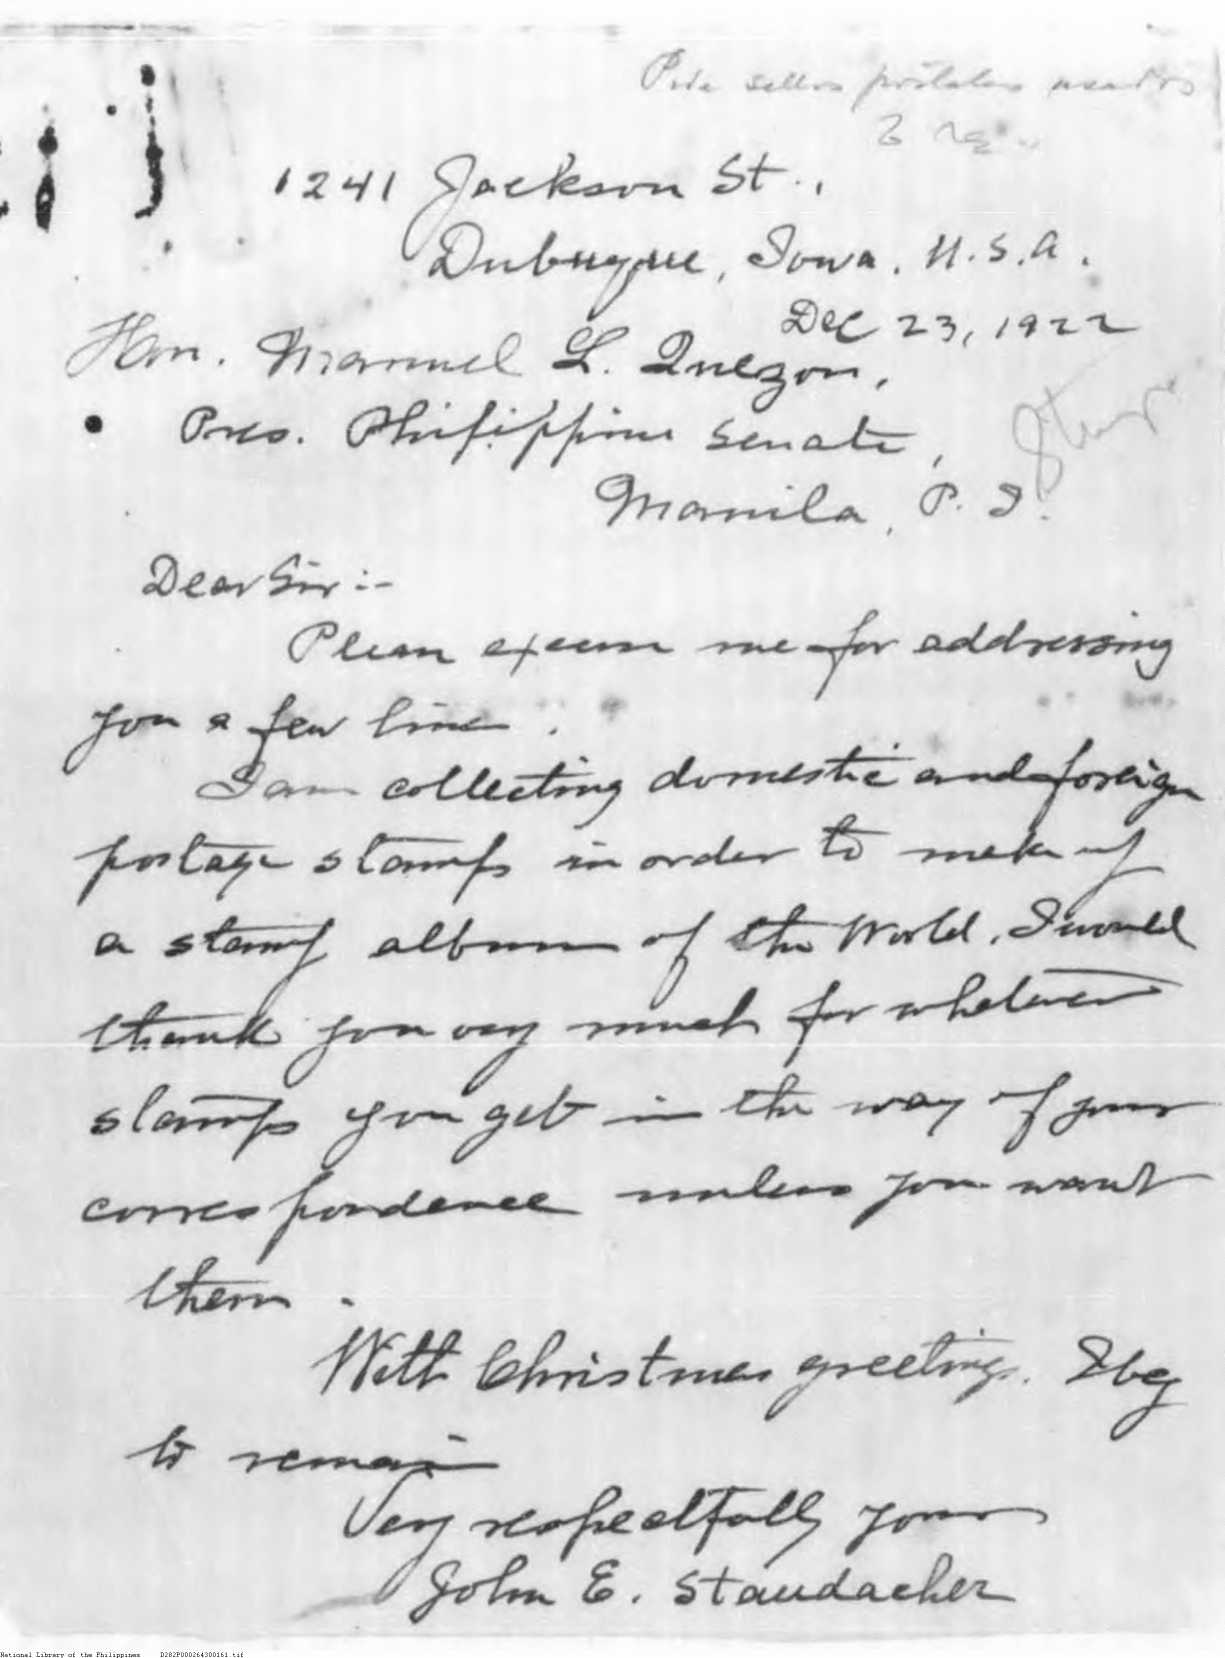 Pide sellos postales usados
1241 Jackson St.,
Dubuque, Iowa. U.S.A.
Dec 23, 1922
Hon. Manuel L. Quezon,
Pres. Philippine Senate,
Manila, P. I.
Dear Sir:-
Please excuse me for addressing
you a few lines.
I am collecting domestic and foreign
postage stamps in order to make up
a stamp album of the World. I would
thank you very much for whatever
stamps you get in the way of your
correspondence unless you want
them.
With Christmas greetings. I beg
to remain
Very respectfully yours
John E. Staudacher
National Library of the Philippines D282P000264300161.tif